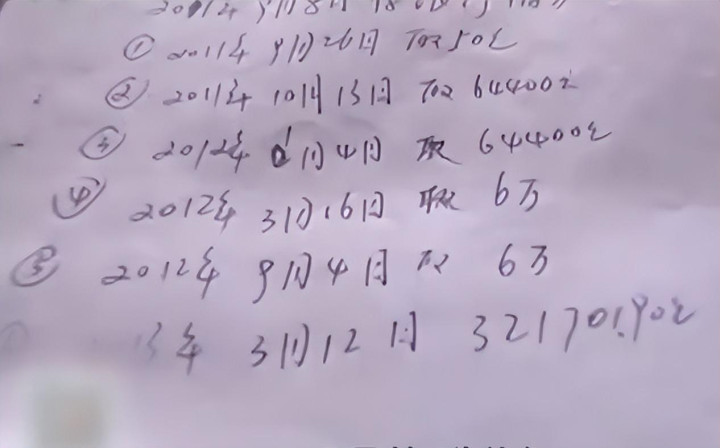 ① 2011年9月26日 取50元
② 2011年10月13日 取64400元
③ 2012年1月4日 取64400元
④ 2012年3月16日 取 6万
⑤ 2012年9月4日 取 6万
13年 3月12日 321701.90元